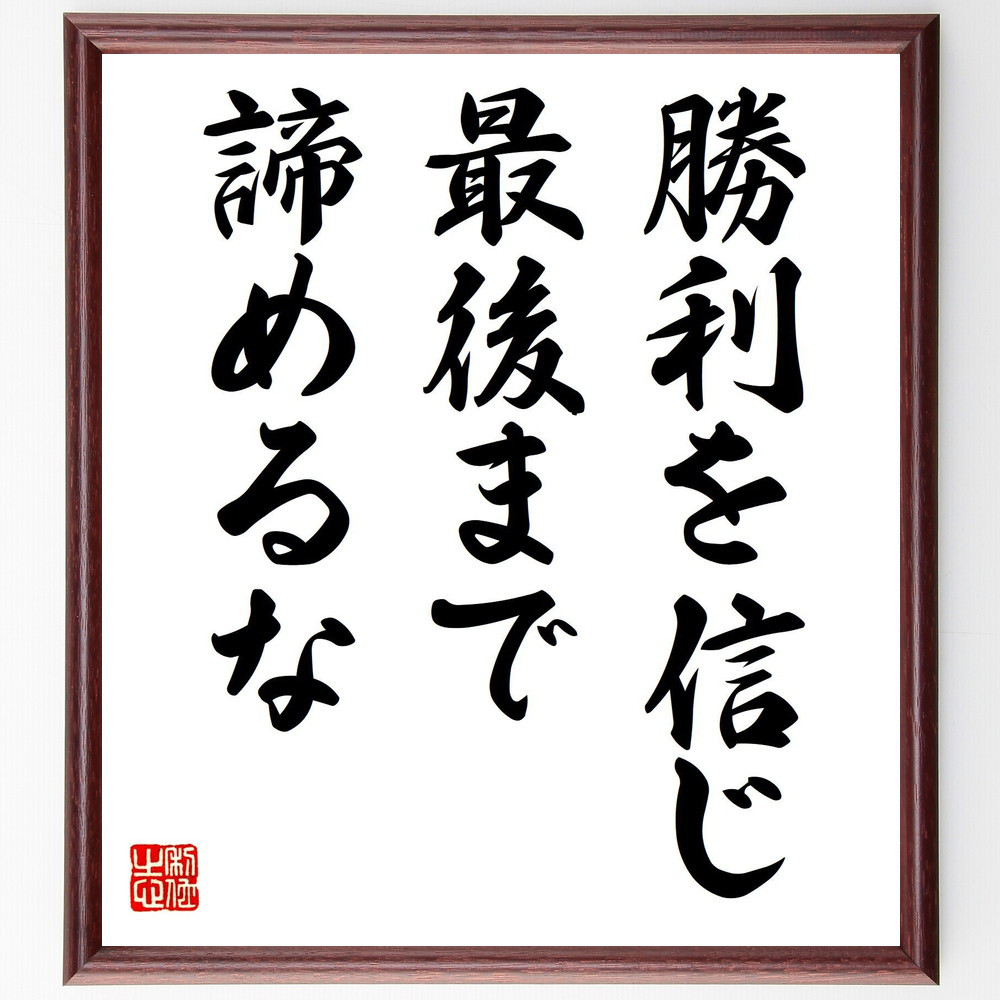 勝利を信じ
最後まで
諦めるな